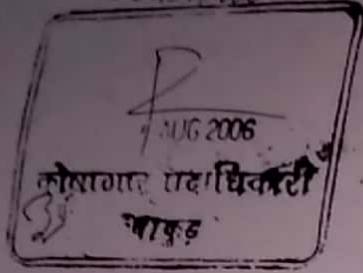 AUG 2006
कोषागार पदाधिकारी
पाकुड़